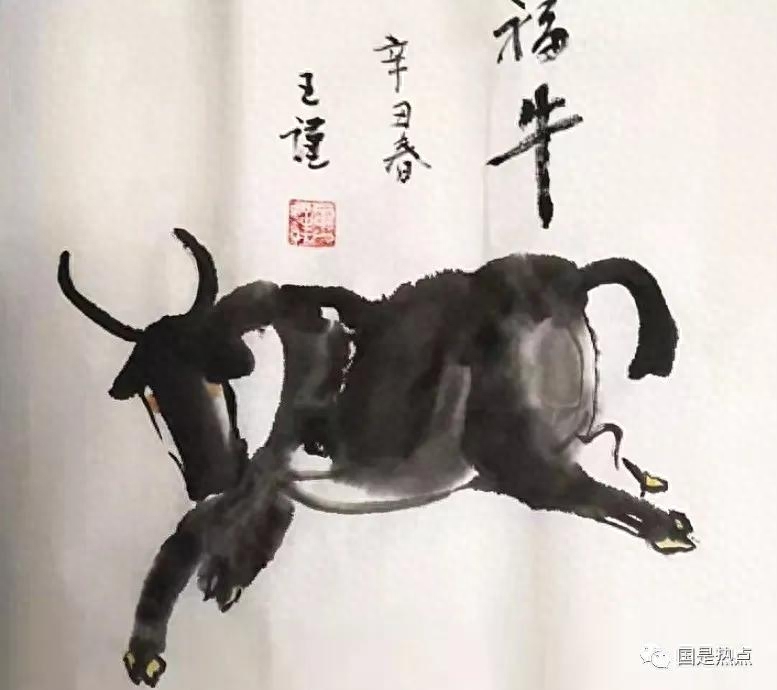 福牛
辛丑春
王谨
国是热点